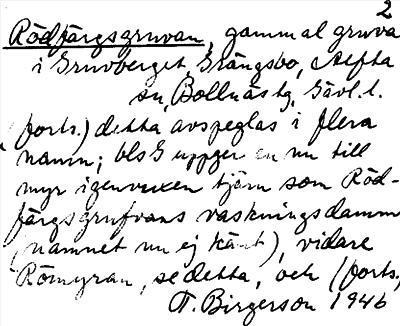 2
Rödfärgsgruvan, gammal gruva
i Gruvberget, Grängsbo, Alfta
sn, Bollnäs tg, Gävl. l.
(forts.) detta avspeglas i flera
namn; bls G uppger en nu till
myr igenvuxen tjärn som Röd-
färgsgrufvans vaskningsdamm
(namnet nu ej känt), vidare
Römyran, se detta, och (forts.)
T. Birgerson 1946